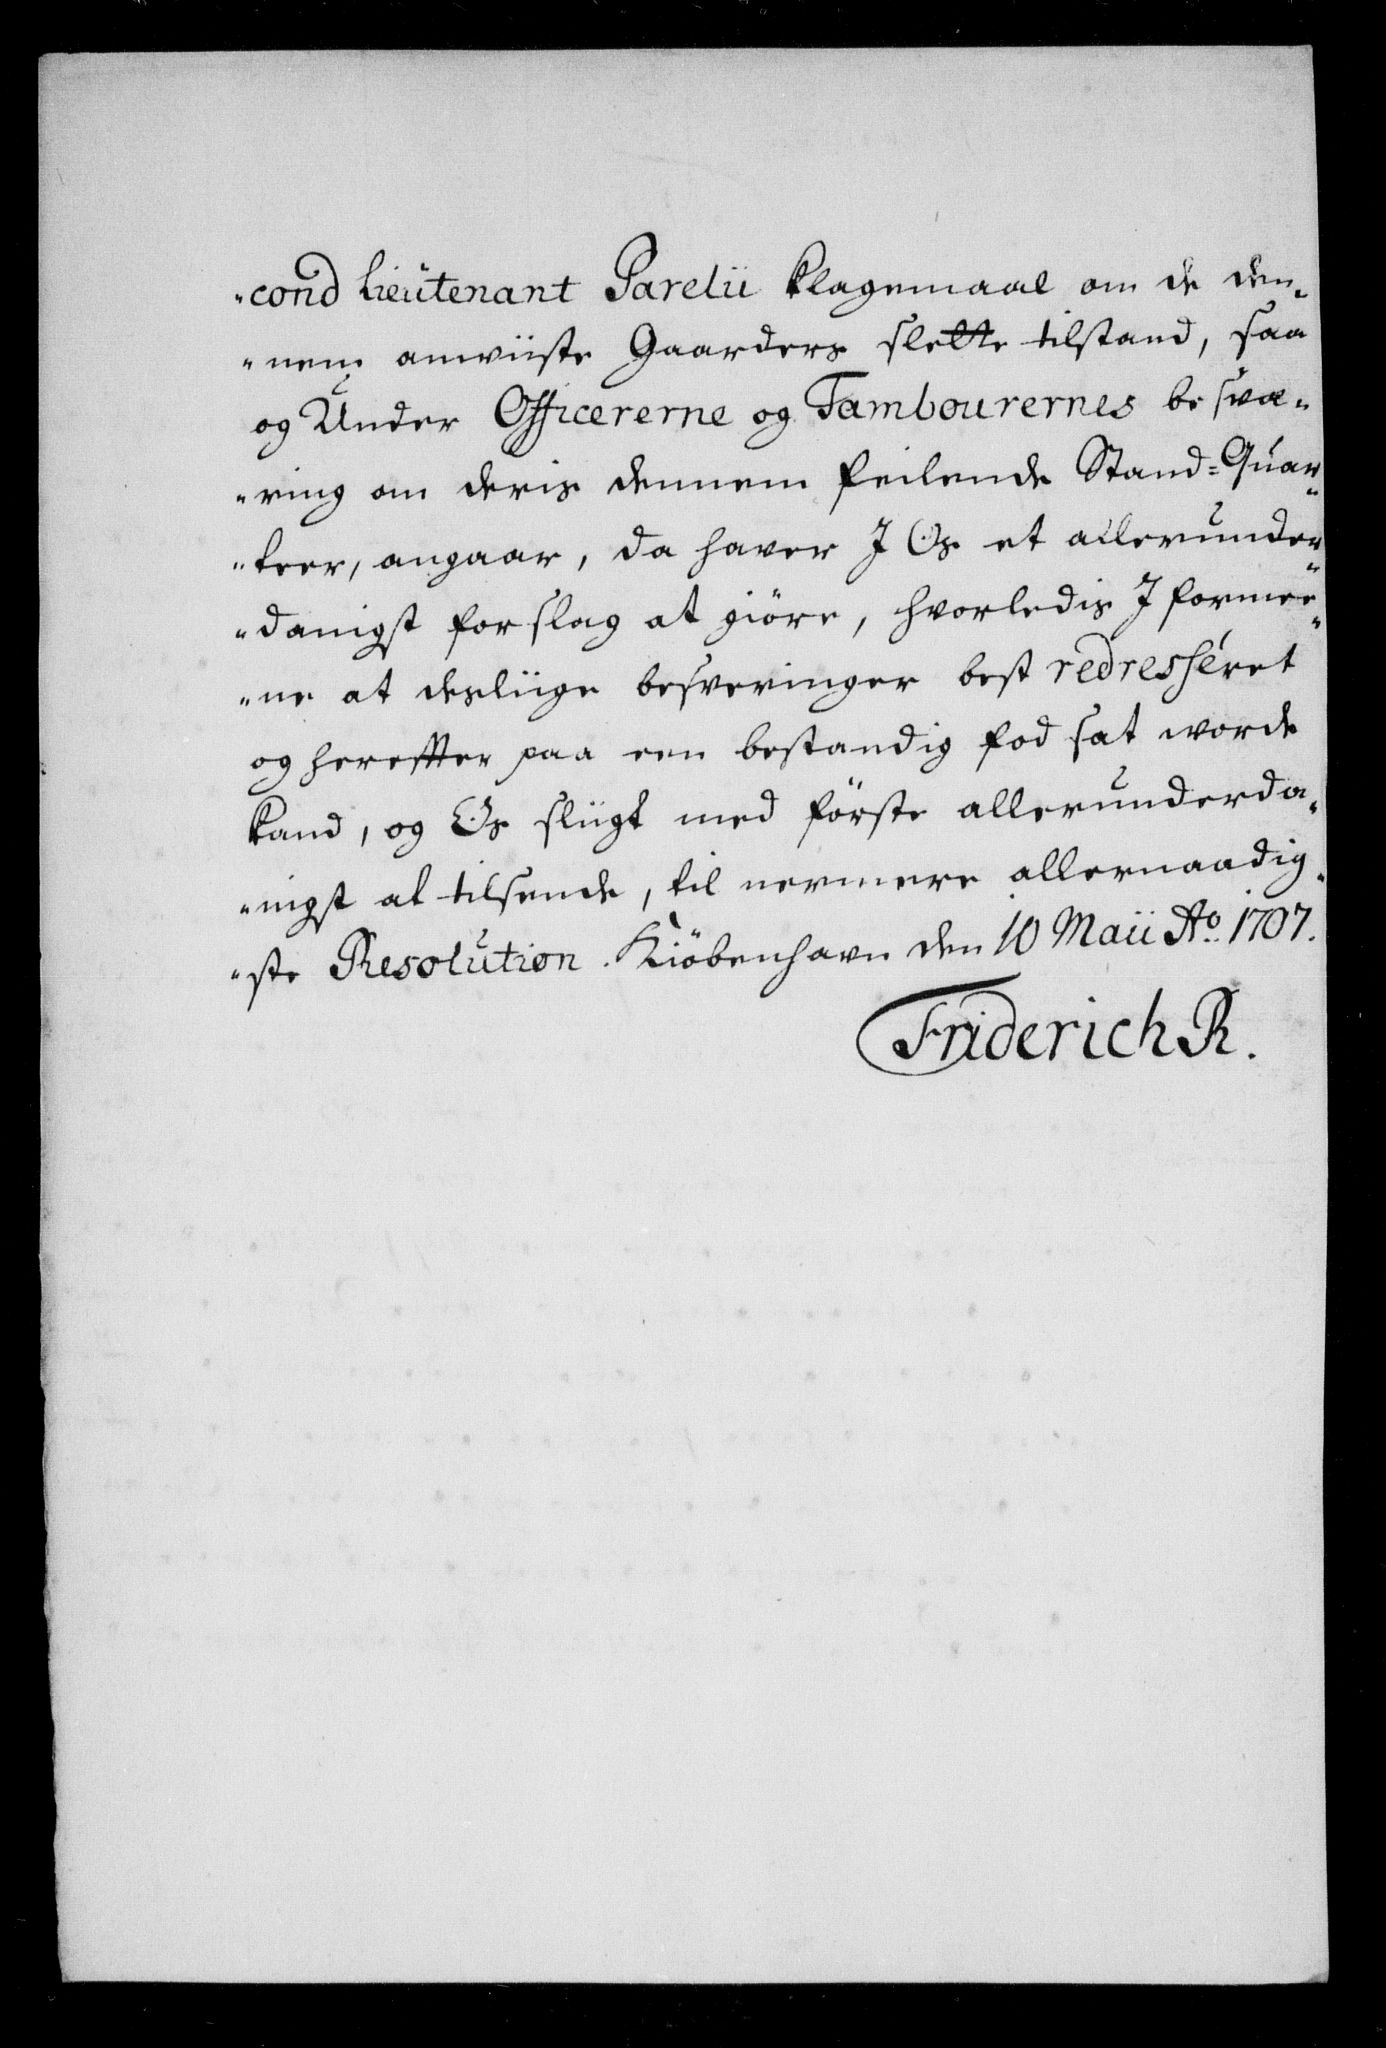 "cond Lieutenant Parelii klagemaal om de den„
"nem anviiste Gaarders slette tilstand, saa
og Under Officererne og Tambourernes besvæ„
"ring om deris dennem feilende Stand=Quar„
"teer, angaar, da haver I Os et allerunder„
"danigst forslag at giöre, hvorledis I formee„
"ne at desliige besveringer best redresséret
og hereffter paa een bestandig fod sat worde
kand, og Os sliigt med förste allerunderda„
"nigst at tilsende, til nermere allernaadig„
"ste Resolution. Kiöbenhavn den 10 Maii Ao. 1707.
Friderich R.